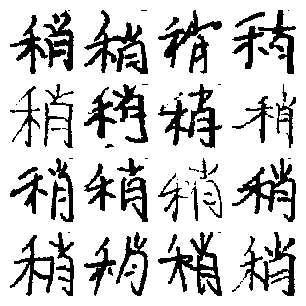 稍稍稍稍
稍稍稍稍
稍稍稍稍
稍稍稍稍